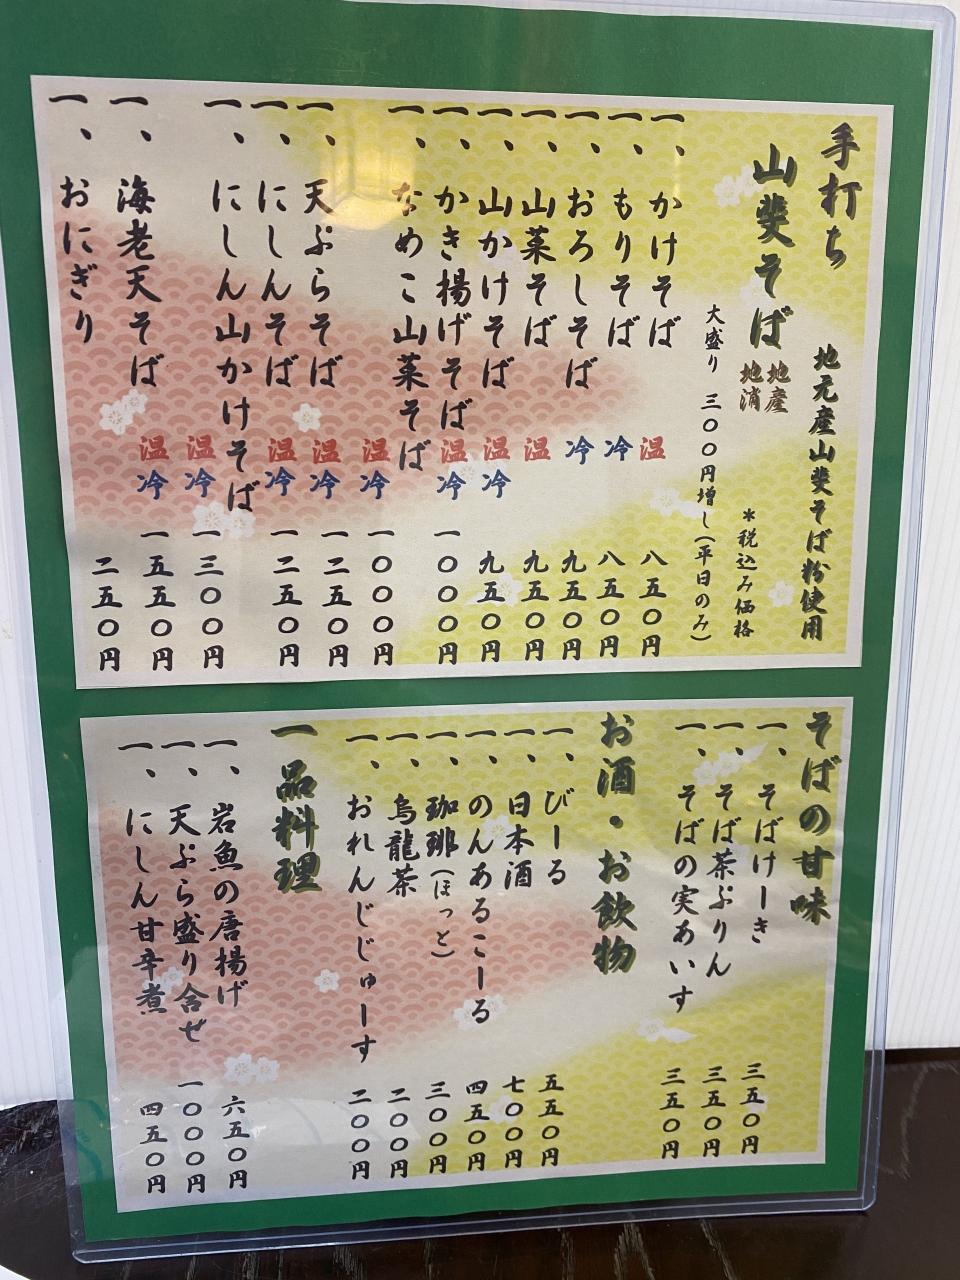 手打ち
山斐そば
地産
地消
地元産山斐そば粉使用
＊税込み価格
大盛り 三〇〇円増し(平日のみ)
一、かけそば 温 八五〇円
一、もりそば 冷 八五〇円
一、おろしそば 冷 九五〇円
一、山菜そば 温 九五〇円
一、山かけそば 温冷 九五〇円
一、かき揚げそば 温冷 一〇〇〇円
一、なめこ山菜そば 温冷 一〇〇〇円
一、天ぷらそば 温冷 一二五〇円
一、にしんそば 温冷 一二五〇円
一、にしん山かけそば 温冷 一三〇〇円
一、海老天そば 温冷 一五五〇円
一、おにぎり 二五〇円
そばの甘味
一、そばけーき 三五〇円
一、そば茶ぷりん 三五〇円
一、そばの実あいす 三五〇円
お酒・お飲物
一、びーる 五五〇円
一、日本酒 七〇〇円
一、のんあるこーる 四五〇円
一、珈琲(ほっと) 三〇〇円
一、烏龍茶 二〇〇円
一、おれんじじゅーす 二〇〇円
一品料理
一、岩魚の唐揚げ 六五〇円
一、天ぷら盛り合せ 一〇〇〇円
一、にしん甘辛煮 四五〇円